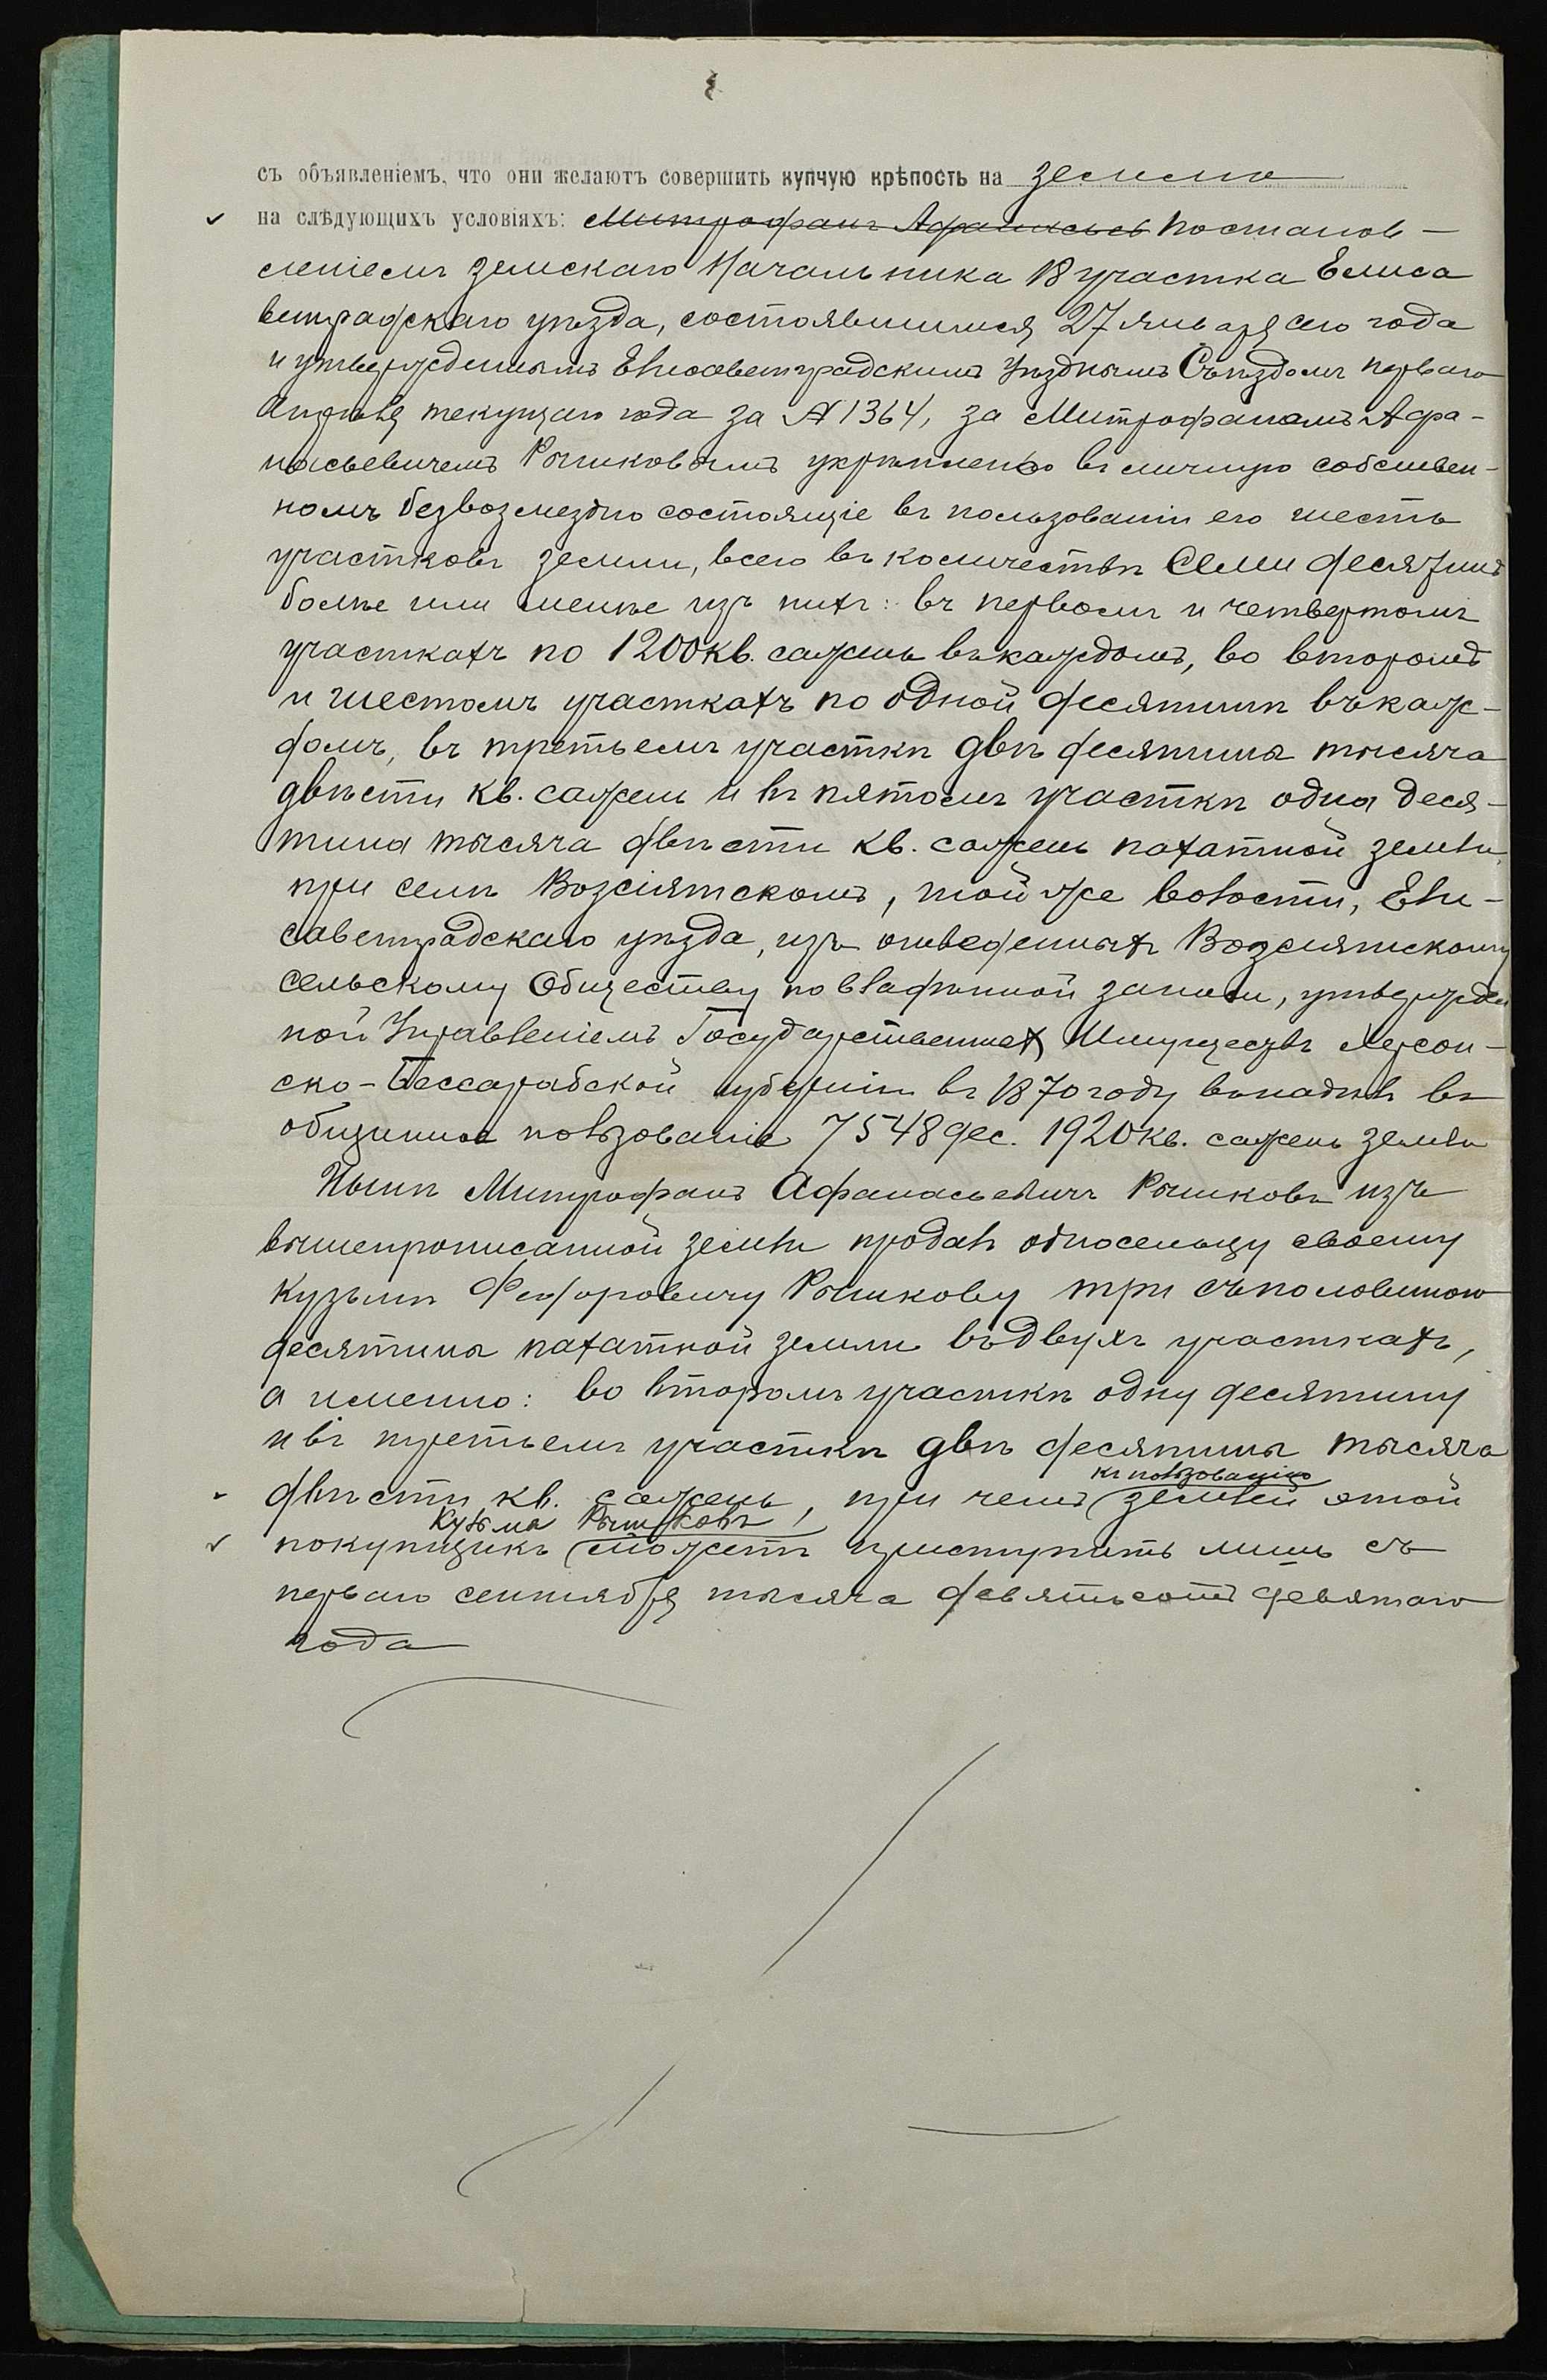 съ объявленіемъ, что они желаютъ совершить купчую крѣпость на землю
на слѣдующихъ условіяхъ: Митрофанъ Афанасьев Постанов-
леніемъ Земскаго Начальника 18 участка Елиса
ветградскаго уѣзда, состоявшимся 27 января сего года
и утвержденнымъ Елисаветградскимъ Уѣзднымъ Съѣздомъ перваго
Апрѣля текущаго года за № 1364, за Митрофаномъ Афа-
насьевичемъ Рышковымъ укрѣплено въ личную собствен-
ность безвозмездно состоящіе въ пользованіи его шесть
участковъ земли, всего въ количествѣ Семи десятинъ
болѣе или менѣе изъ нихъ: въ первомъ и четвертомъ
участкахъ по 1200 кв. сажень въ каждомъ, во второмъ
и шестомъ участкахъ по одной десятинѣ въ каж-
домъ, въ третьемъ участкѣ двѣ десятины тысяча
двѣсти кв. сажень и въ пятомъ участкѣ одна деся-
тина тысяча двѣсти кв. сажень пахатной земли
при селѣ Возсіятскомъ, той же волости, Ели-
саветградскаго уѣзда, изъ отведенныхъ Возсіятскому
сельскому Обществу по владѣнной записи, утвержден
ной Управленіемъ Государственных Имуществъ Херсон-
ско-Бессарабской губерніи въ 1870 году въ надѣлъ въ
общинное пользованіе 7548 дес. 1920 кв. сажень земли
Нынѣ Митрофанъ Афанасьевичъ Рышковъ изъ
вышепрописанной земли продалъ односельцу своему
Кузьмѣ Федоровичу Рышкову три съ половиною
десятины пахатной земли въ двухъ участкахъ,
а именно: во второмъ участкѣ одну десятину
и въ третьемъ участкѣ двѣ десятины тысяча
къ пользованію
двѣсти кв. сажень, при чемъ землей этой
Кузьма Рышковъ
покупщикъ можетъ приступить лишь съ
перваго сентября тысяча девятьсотъ девятаго
года